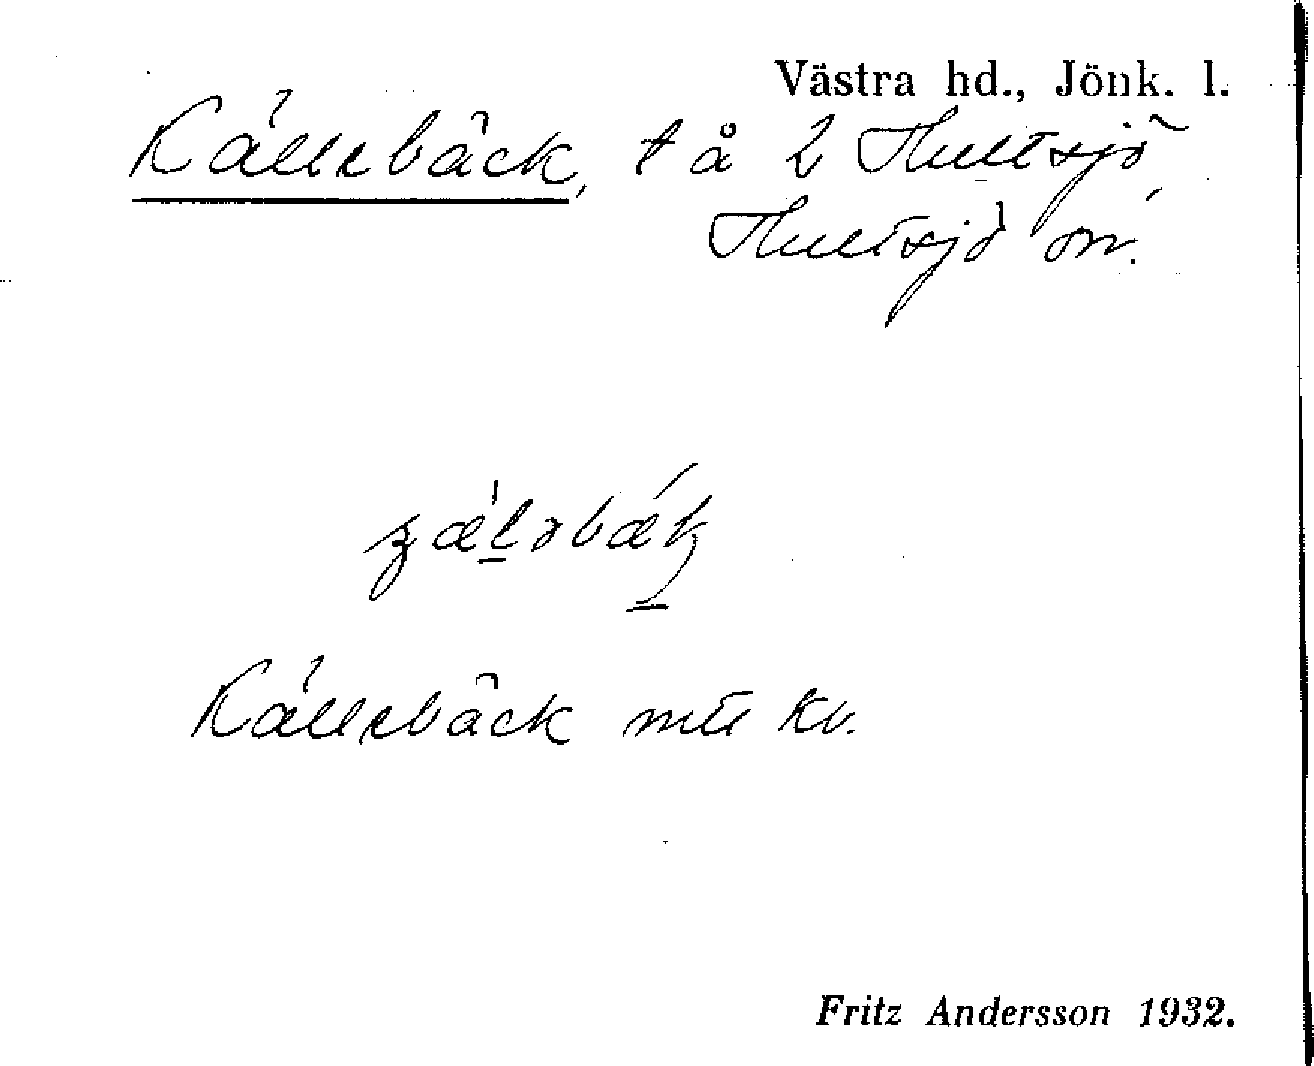 Västra hd., Jönk. l.
Källebäck, t å 2 Hultsjö,
Hultsjö sn.
Källebäck mtl kv.
Fritz Andersson 1932.